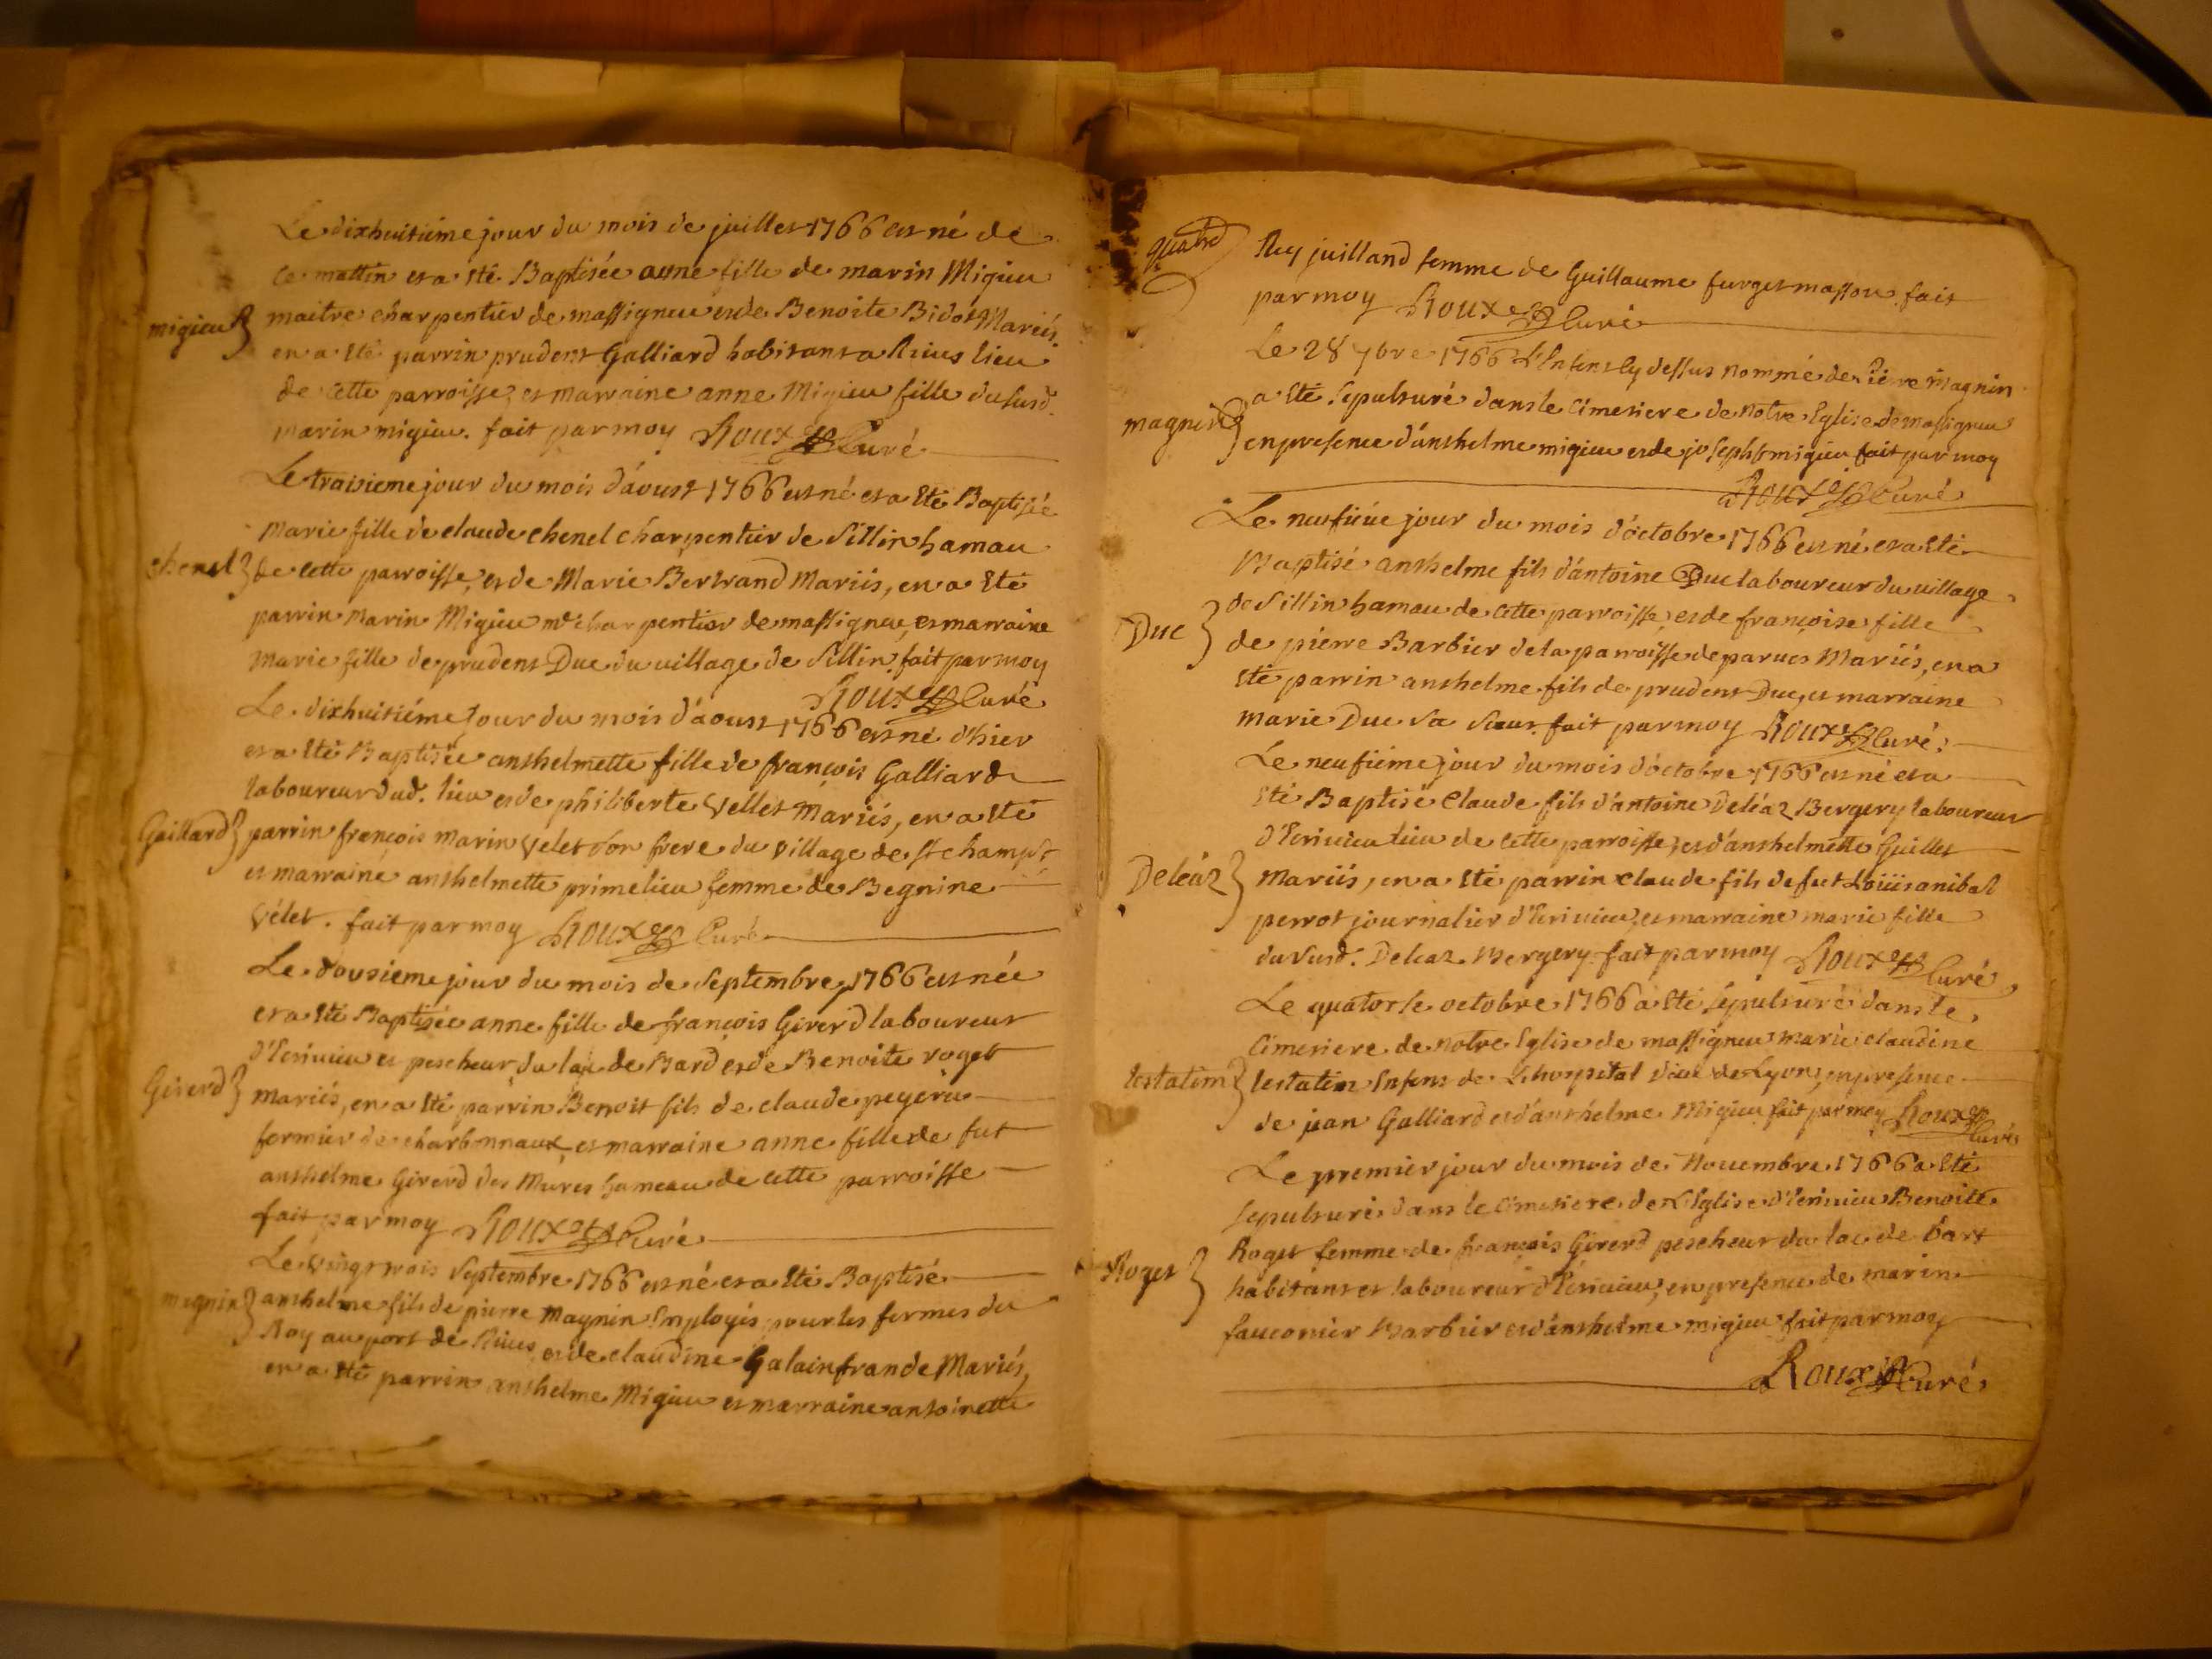 Le dixhuitiéme jour du mois de juillet 1766 est né de
ce mattin et a eté Baptisée anne fille de marin Migieu
migieu } maitre charpentier de massigneu et de Benoite Bidot Mariés.
en a eté parrin prudent Galliard habitant a Rives lieu
de cette parroisse, et marraine anne Migieu fille du susd.
marin migieu. fait par moy Roux Curé
Le traisieme jour du mois d'áoust 1766 est né et a eté Baptisée
Marie fille de claude chenel charpentier de Sillin hamau
chenel } de cette parroisse, et de Marie Bertrand Mariés, en a eté
parrin Marin Migieu me charpentier de massigneu, et marraine
marie fille de prudent Duc du village de Sillin fait par moy
Roux Curé
Le dixhuitiéme jour du mois d'áoust 1766 est né d'hier
et a eté Baptisée anthelmette fille de françois Galliard
laboureur dud. lieu et de philiberte Vellet Mariés, en a eté
Gaillard } parrin françois marin Velet son frere du village de St champt
et marraine anthelmette primelieu femme de Begnine
Vélet. fait par moy Roux Curé
Le dousieme jour du mois de septembre, 1766 est née
et a eté Baptisée anne fille de françois Girerd laboureur
d'Ecrivieu et pescheur du lac de Bard et de Benoite roget
Girerd } mariés, en a eté parrin Benoit fils de claude
fermier de charbonnaux, et marraine anne fille de fut
anthelme Girerd des Mures hameau de cette parroisse
fait par moy Roux Curé
Le vingt trois Septembre 1766 est né et a eté Baptisé
magnin } anthelme fils de pierre Magnin Employés pour les fermes du
Roy au port de Rives et de claudine Mariés,
en a eté parrin anthelme Migieu et marraine antoinette
quatre Rey juilland femme de Guillaume furget masson fait
par moy Roux Curé
Le 28 7bre 1766 L'Enfent cy dessus nommé de Pierre Magnin
magnin } a eté sepulturé dans le Cimetiere de notre Eglise de massigneu
en presence d'ánthelme migieu et de joseph migieu fait par moy
Roux Curé
Le neufiéme jour du mois d'óctobre 1766 est né et a eté
Baptisé anthelme fils d'ántoine Duc laboureur du village
de Sillin hamau de cette parroisse, et de françoise fille
Duc } de pierre Barbier de la parroisse de parves Mariés, en a
eté parrin anthelme fils de prudent Duc, et marraine
marie Duc sa sœur. fait par moy Roux Curé.
Le neufiéme jour du mois d'óctobre 1766 est né et a
eté Baptisé Claude fils d'antoine Deléaz Bergery laboureur
d'Ecrivieu lieu de cette parroisse, et d'anthelmette Guillet
Deléaz } Mariés, en a eté parrin claude fils de fut Loüis anibal
perrot journalier d'Ecrivieu, et marraine marie fille
du susd. Deleaz Bergery fait par moy Roux Curé
Le quatorse octobre 1766 a eté sepulturé dans le
Cimetiere de notre Eglise de massigneu marie claudine
lestatim } lestatim Enfent de L'hospital de Lyon, en presence
de jean Galliard et d'anthelme Migieu fait par moy Roux Curé
Le premier jour du mois de Novembre 1766 a eté
sepulturé dans le Cimetiere de L'Eglise d'Ecrivieu Benoite
Roget } Roget femme de françois Girerd pescheur du lac de Bart
habitant et laboureur d'Ecrivieu, en presence de marin
fauconier Barbier et d'anthelme migieu fait par moy
Roux Curé